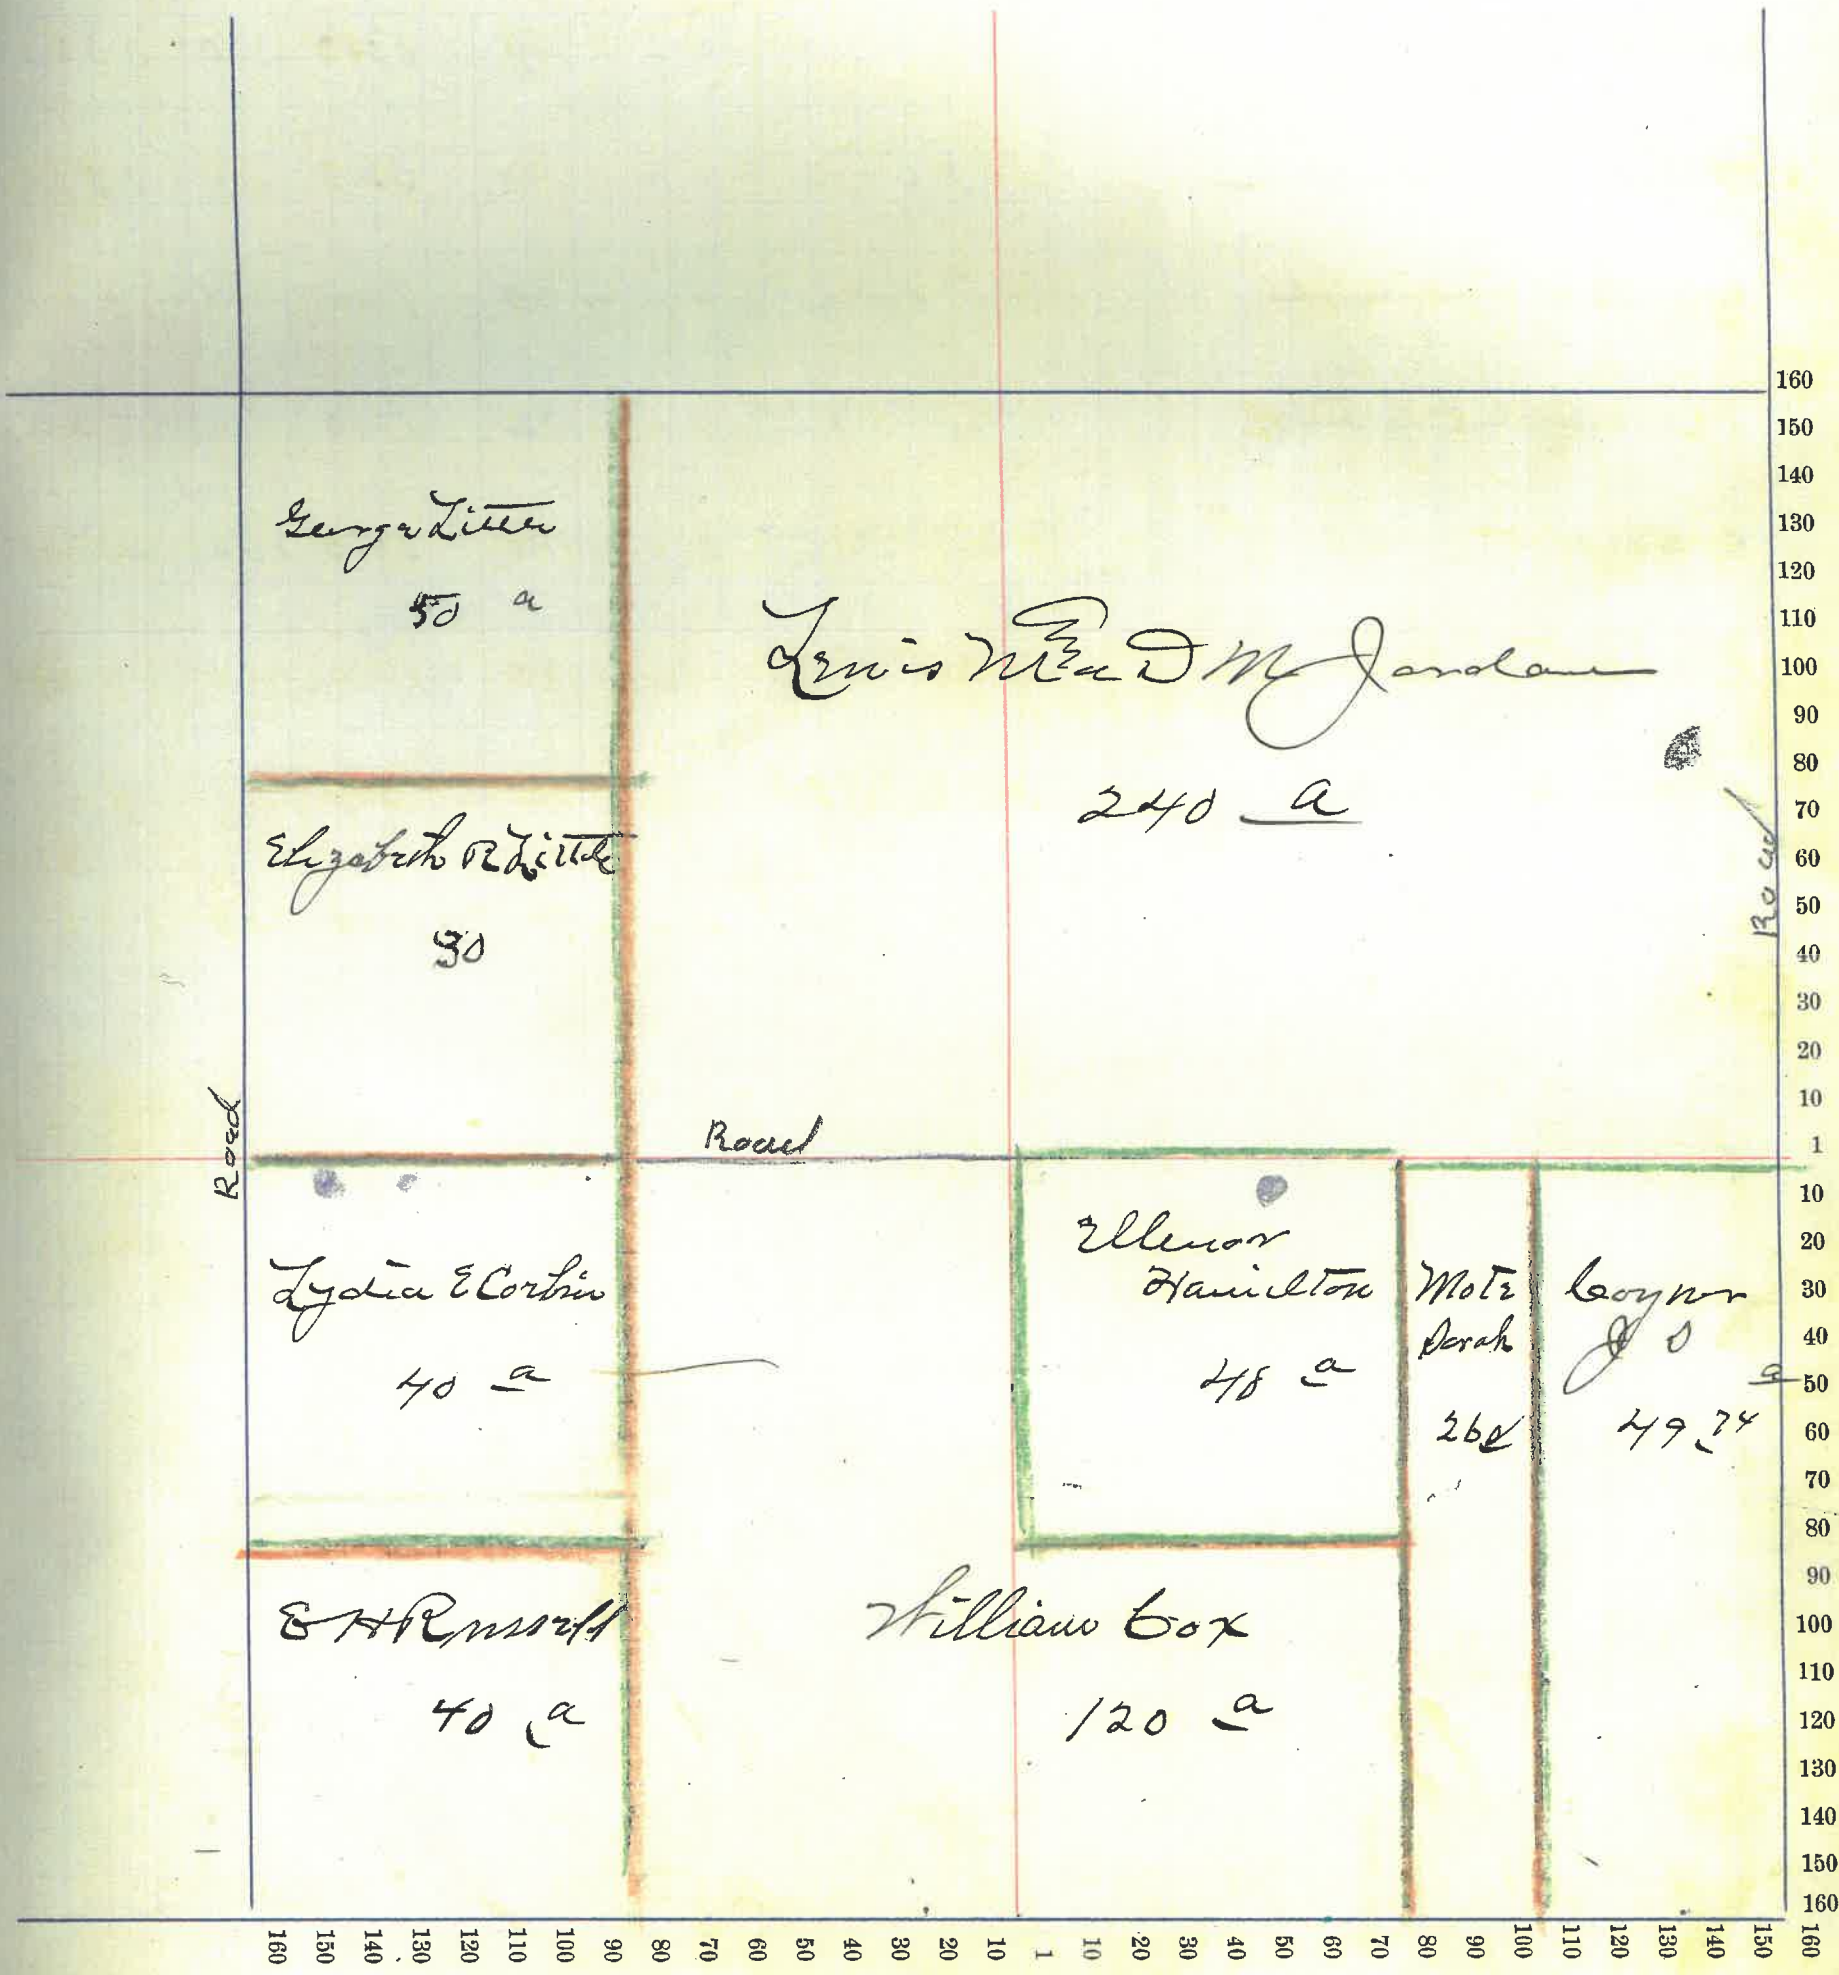 George Litter
50 a
Lewis D M Jordan
240 a
Elizabeth R Little
30
Road
Road
Road
Lydia E Corbin
40 a
Ellenor
Hamilton
48 a
Mote
Sarah
26 a
Coyner
J S
a
49 74
E H Russell
40 a
William Cox
120 a
160
150
140
130
120
110
100
90
80
70
60
50
40
30
20
10
1
10
20
30
40
50
60
70
80
90
100
110
120
130
140
150
160
160 150 140 130 120 110 100 90 80 70 60 50 40 30 20 10 1 10 20 30 40 50 60 70 80 90 100 110 130 140 150 160